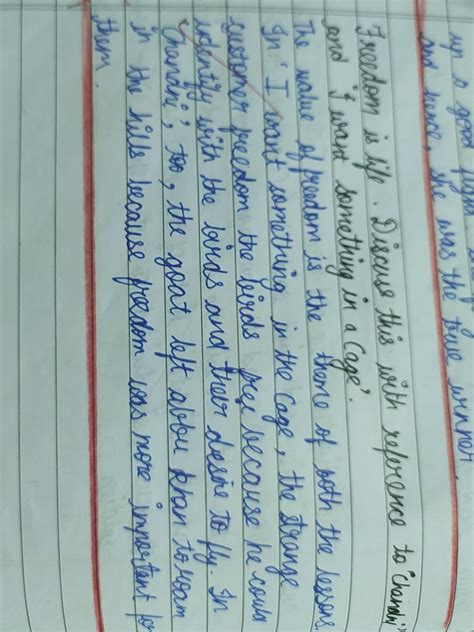 up a good fig
and hence, she was the true winner.
Freedom is life. Discuss this with reference to "Chandni"
and 'I want something in a Cage'.
The value of freedom is the theme of both the lessons
In 'I want something in the Cage, the strange
customer freedom the birds free because he could
identity with the birds and their desire to fly. In
'Chandni', too, the goat left abbu khan to roam
in the hills because freedom was more important for
them.